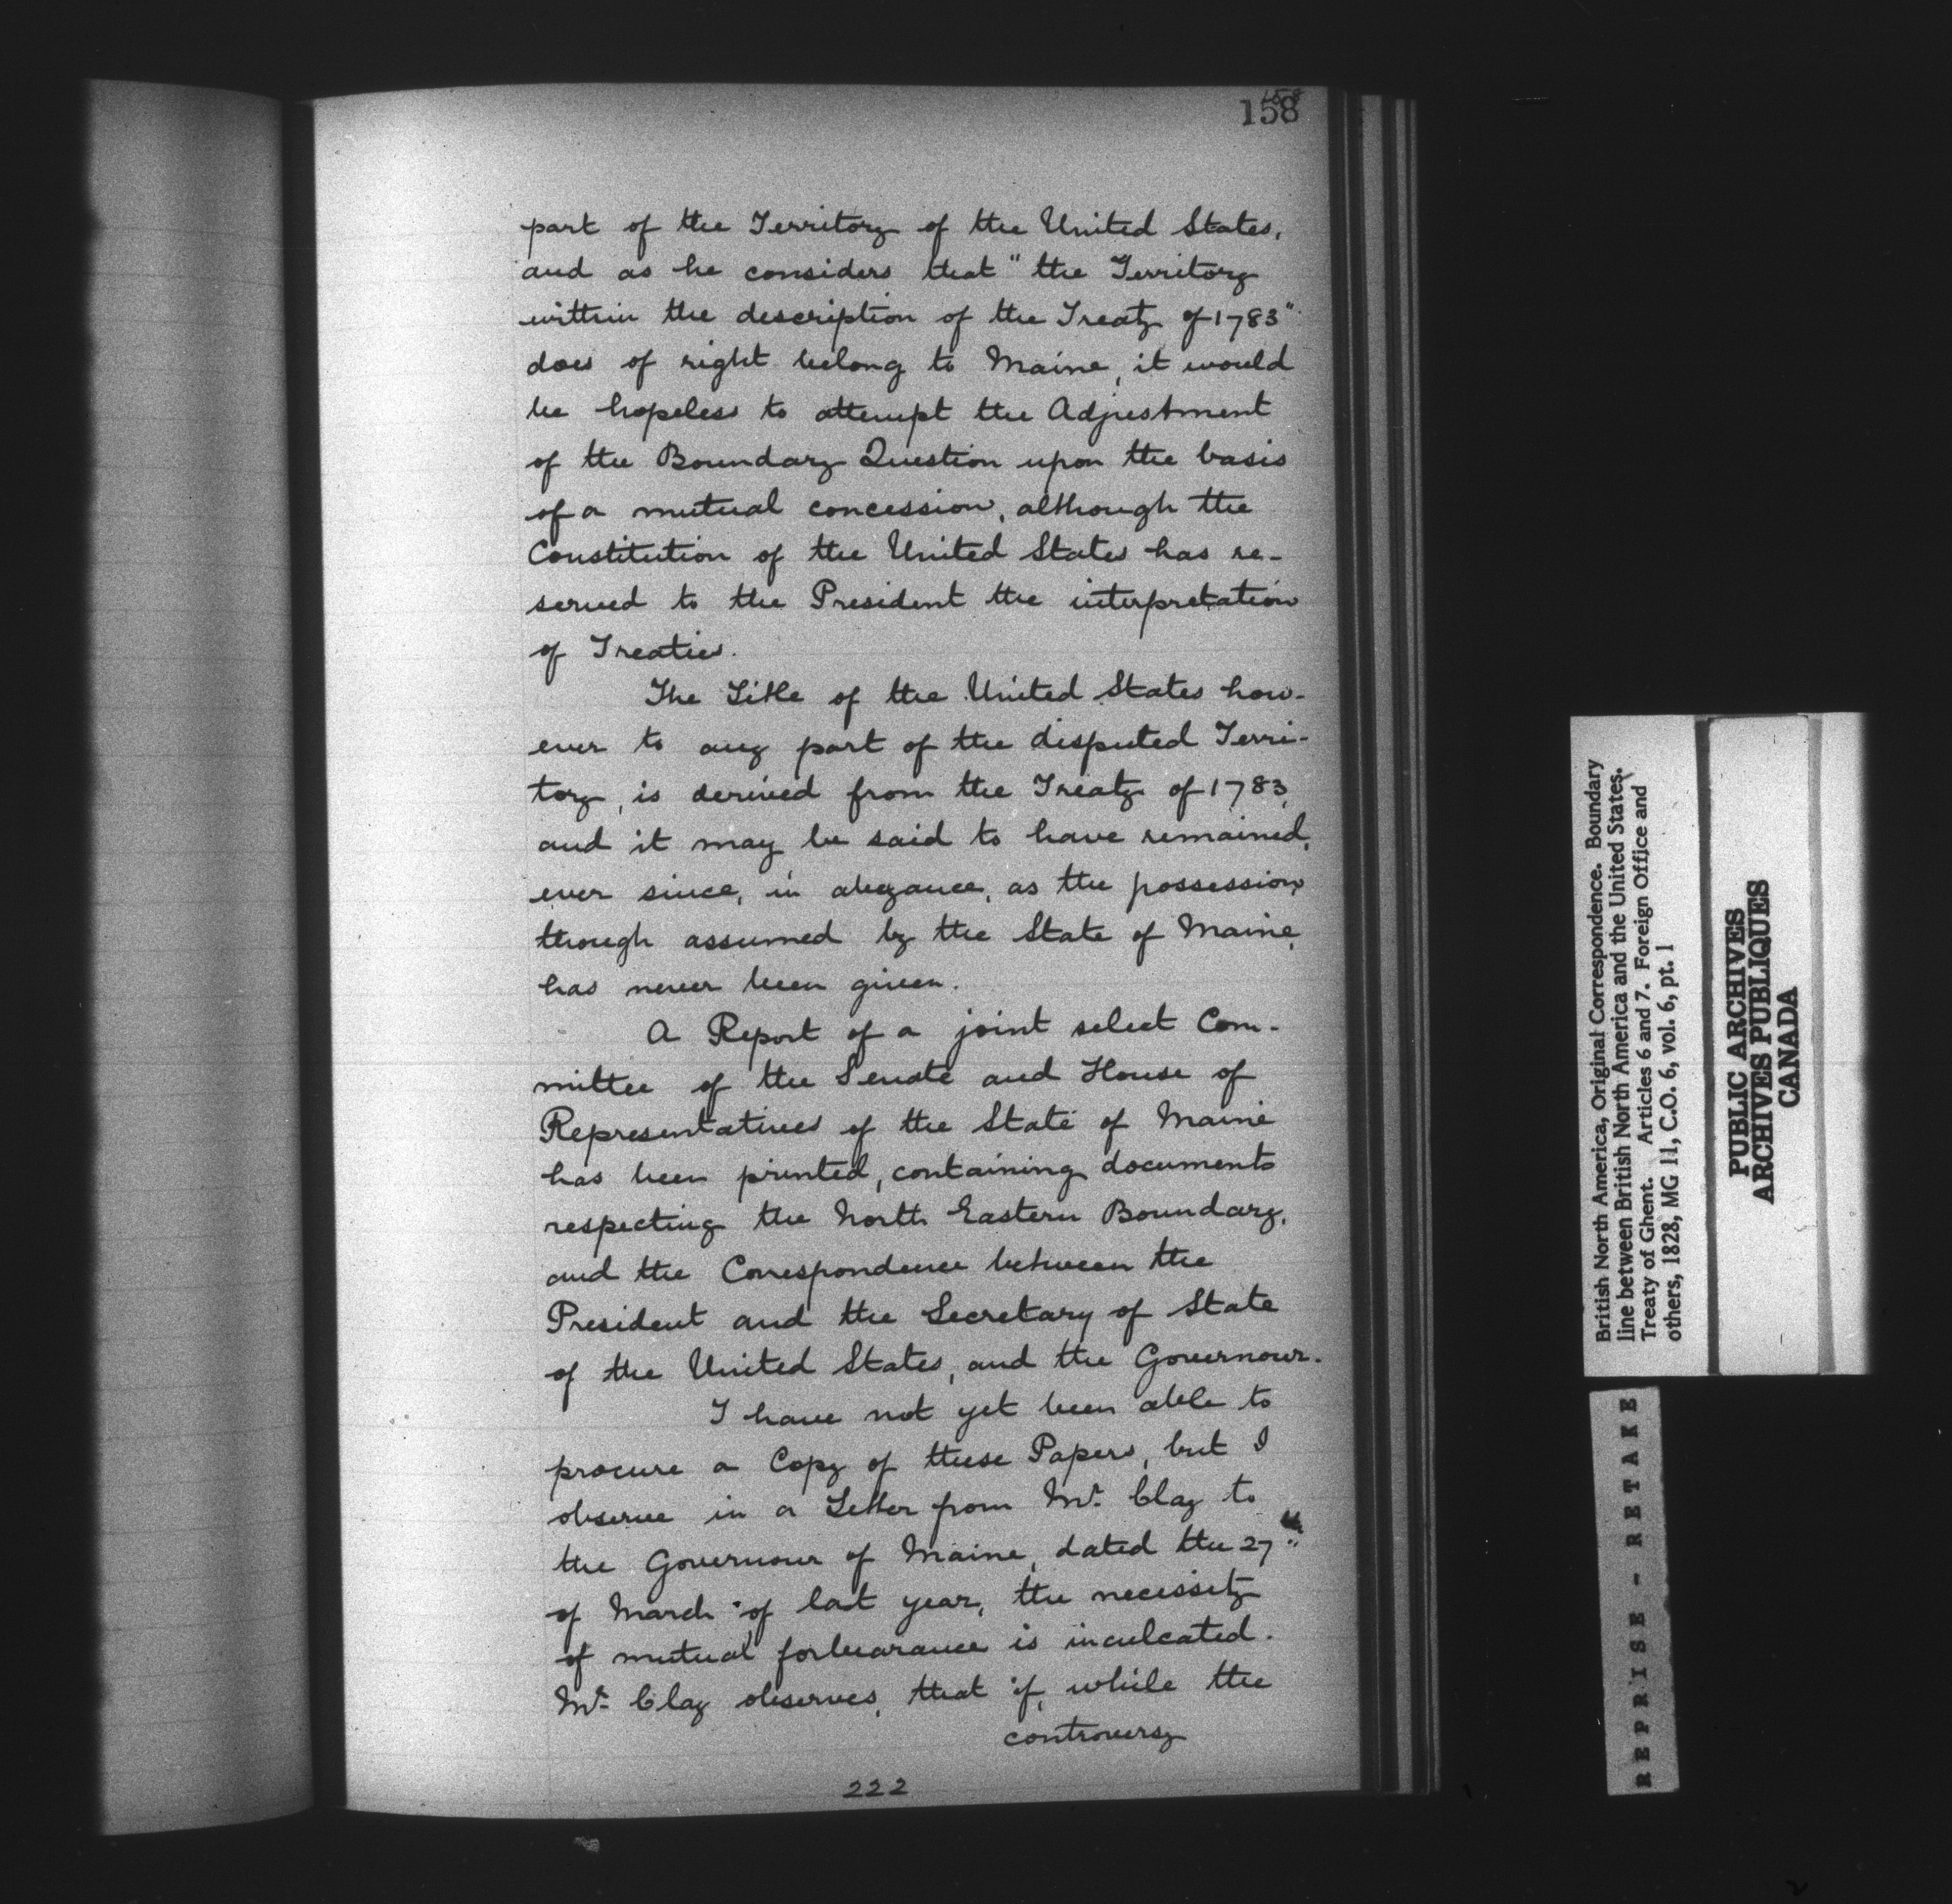 158
158
part of the Territory of the United States,
and as he considers that "the Territory
within the description of the Treaty of 1783"
does of right belong to Maine, it would
be hopeless to attempt the Adjustment
of the Boundary Question upon the basis
of a mutual concession, although the
Constitution of the United States has re-
served to the President the interpretation
of Treaties.
The Title of the United States how-
ever to any part of the disputed Terri-
tory, is derived from the Treaty of 1783,
and it may be said to have remained,
ever since, in abeyance, as the possession,
though assumed by the State of Maine,
has never been given.
A Report of a joint select Com-
mittee of the Senate and House of
Representatives of the State of Maine
has been printed, containing documents
respecting the North Eastern Boundary,
and the Correspondence between the
President and the Secretary of State
of the United States, and the Governour.
I have not yet been able to
procure a Copy of these Papers, but I
observe in a Letter from Mr. Clay to
the Governour of Maine, dated the 27th
of March of last year, the necessity
of mutual forbearance is inculcated.
Mr. Clay observes, that if, while the
controversy
222
British North America, Original Correspondence. Boundary
line between British North America and the United States.
Treaty of Ghent. Articles 6 and 7. Foreign Office and
others, 1828, MG 11, C.O. 6, vol. 6, pt. 1
PUBLIC ARCHIVES
ARCHIVES PUBLIQUES
CANADA
REPRISE - RETAKE